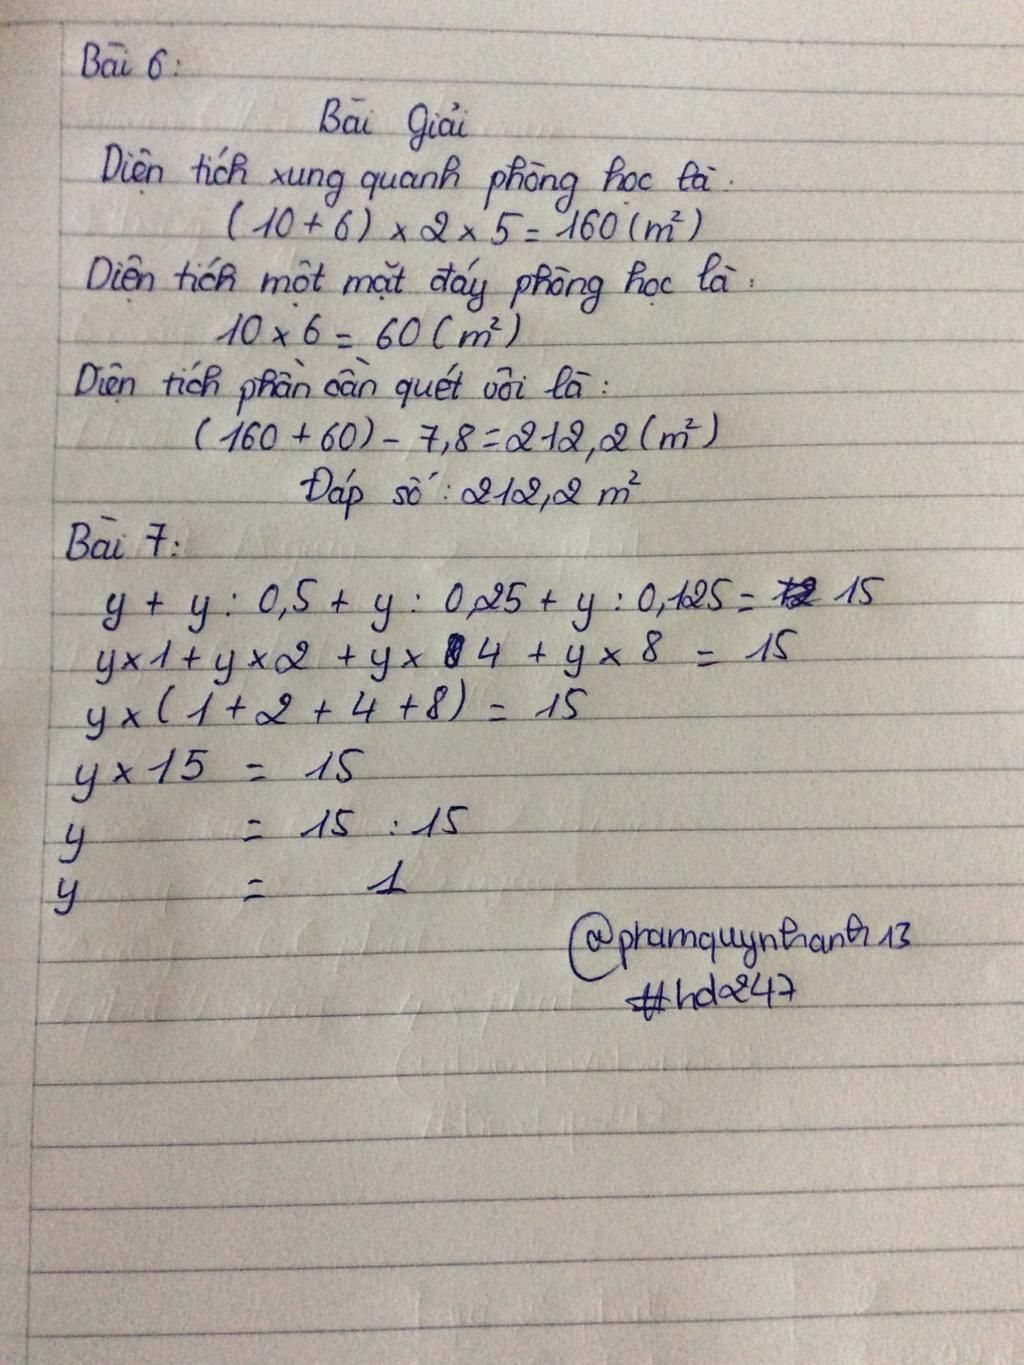 Bài 6:
Bài Giải
Diện tích xung quanh phòng học là:
(10 + 6) x 2 x 5 = 160 (m²)
Diện tích một mặt đáy phòng học là:
10 x 6 = 60 (m²)
Diện tích phần cần quét vôi là:
(160 + 60) - 7,8 = 212,2 (m²)
Đáp số: 212,2 m²
Bài 7:
y + y : 0,5 + y : 0,25 + y : 0,125 = 15
y x 1 + y x 2 + y x 4 + y x 8 = 15
y x (1 + 2 + 4 + 8) = 15
y x 15 = 15
y = 15 : 15
y = 1
@phamquynhanh13
#hd247